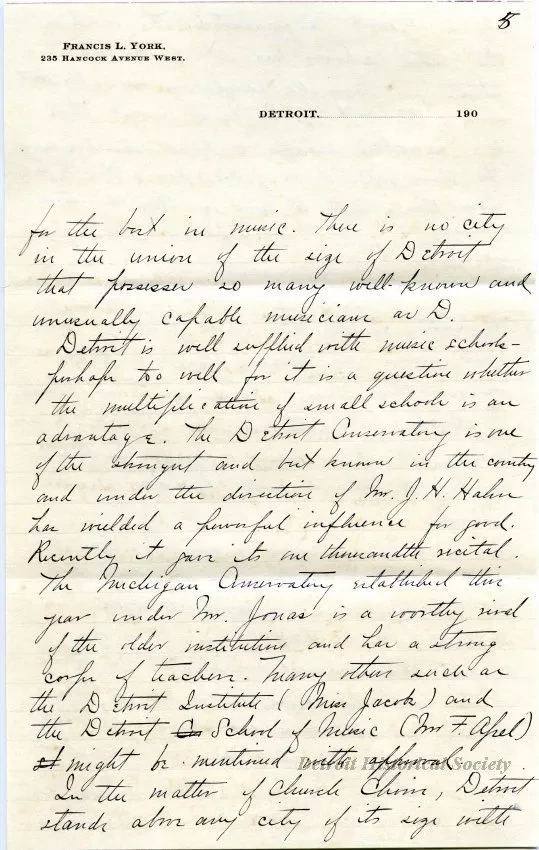 8
FRANCIS L. YORK,
235 HANCOCK AVENUE WEST.
DETROIT, 190
for the best in music. There is no city
in the union of the size of Detroit
that possesses so many well-known and
unusually capable musicians as D.
Detroit is well supplied with music schools-
perhaps too well for it is a question whether
the multiplication of small schools is an
advantage. The Detroit Conservatory is one
of the strongest and best known in the country
and under the direction of Mr. J. H. Hahn
has wielded a powerful influence for good.
Recently it gave its one thousandth recital.
The Michigan Conservatory established this
year under Mr. Jonas is a worthy rival
of the older institution and has a strong
corps of teachers. Many others such as
the Detroit Institute (Miss Jacobs) and
the Detroit Co School of Music (Mr F. Apel)
might be mentioned with approval
Detroit Historical Society
In the matter of Church Choirs, Detroit
stands above any city of its size with